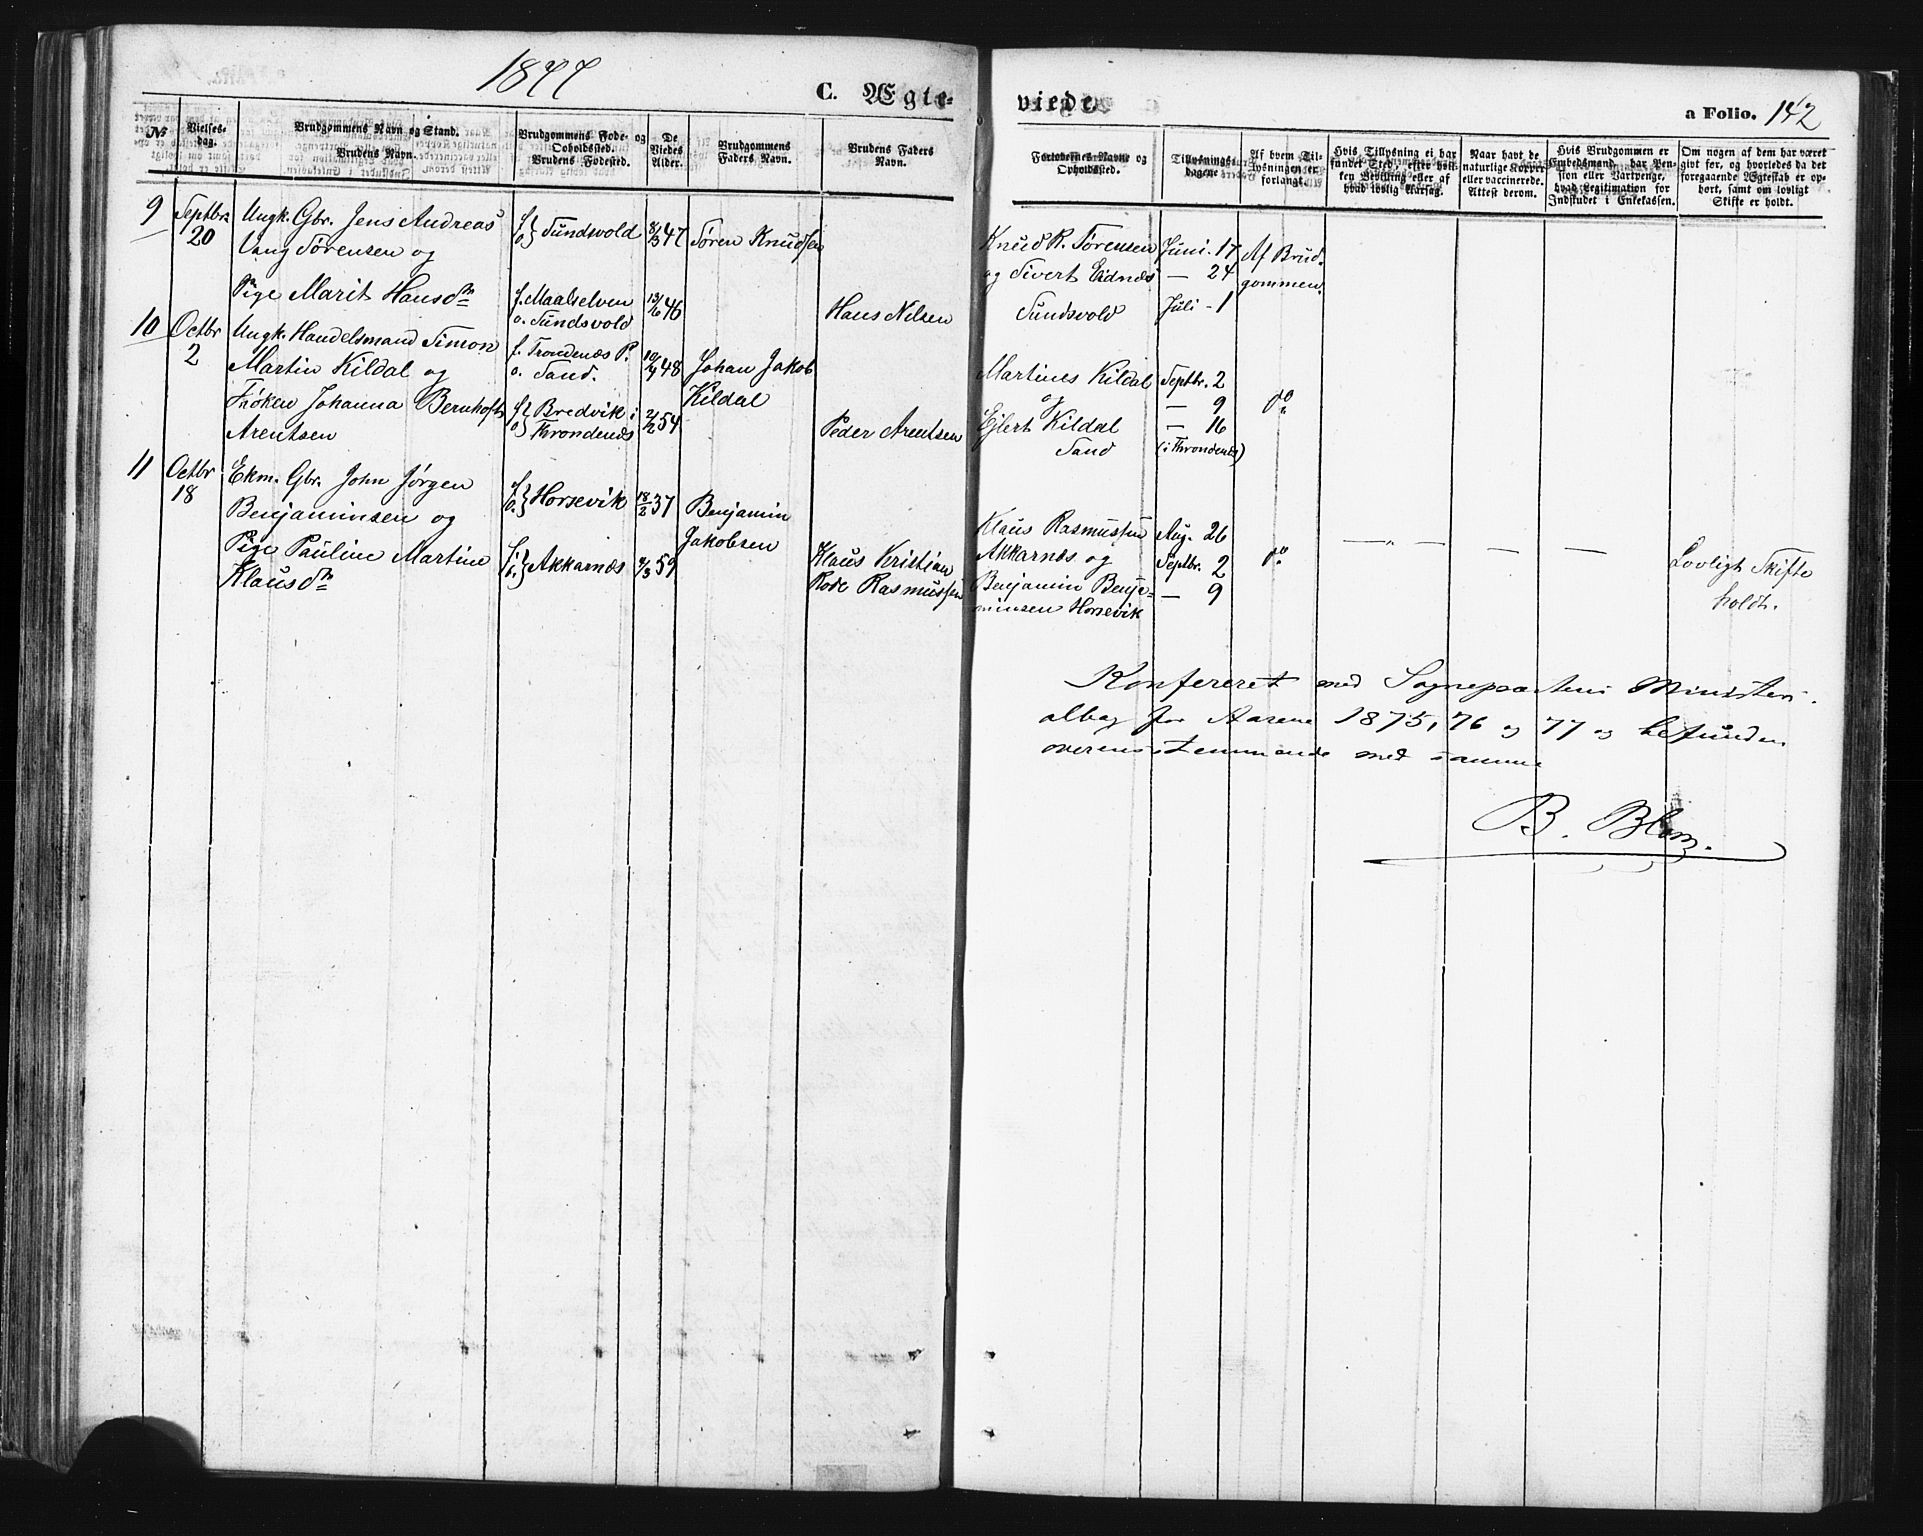 1877
C. Ægte-
viede.
a Folio. 142
№
Vielses-
dag.
Brudgommens Navn og Stand.
Brudens Navn.
Brudgommens Føde- og
Opholdssted.
Brudens Fødested.
De
Viedes
Alder.
Brudgommens
Faders Navn.
Brudens Faders
Navn.
Forlovernes Navne og
Opholdssted.
Tillysnings-
dagene
Af hvem Til-
lysningen er
forlangt.
Hvis Tillysning ei har
fundet Sted, efter hvil-
ken Bevilling eller af
hvad lovlig Aarsag.
Naar havt de
naturlige Kopper
eller vaccinerede.
Attest derom.
Hvis Brudgommen er
Embedsmand, har Pen-
sion eller Vartpenge,
hvad Legitimation for
Indskudet i Enkekassen.
Om nogen af dem har været
gift før, og hvorledes da det
foregaaende Ægteskab er op-
hørt, samt om lovligt
Skifte er holdt.
9
Septbr.
20
Ungk. Gbr. Jens Andreas
Vang Sørensen og
Pige Marit Hansdtr
f. o. } Sundsvold
f. Maalselven
o. Sundsvold
8/3 47
13/6 46
Søren Knudsen
Hans Nilsen
Knud R. Sørensen
og Sivert Eidnes
Sundsvold
Juni. 17
— 24
Juli - 1
Af Brud-
gommen.
10
Octbr
2
Ungk. Handelsmand Simon
Martin Kildal og
Frøken Johanna Bernhoft
Arentsen
f. Trondenæs P.
o. Sand.
f. o. } Bredvik i
Throndenæs
48
2/2 54
Johan Jakob
Kildal
Peder Arentsen
Martines Kildal
og
Ejlert Kildal
Sand
Septbr. 2
— 9
— 16
(i Throndenæs)
do
11
Octbr
18
Ekm. Gbr. John Jørgen
Benjaminsen og
Pige Pauline Martine
Klausdtr
f. o. } Horsevik
f. i. } Akkarnæs
18/2 37
9/3 59
Benjamin
Jakobsen
Klaus Kristian
Rode Rasmussen
Klaus Rasmussen
Akkarnæs og
Benjamin Benja-
minsen Horsevik
Aug. 26
Septbr. 2
— 9
do
— „ — — — —
Lovligt Skifte
holdt.
Konfereret med Sognepræstens Ministeri-
albog for Aarene 1875, 76 og 77 og befunden
overensstemmende med samme
B. Blom.